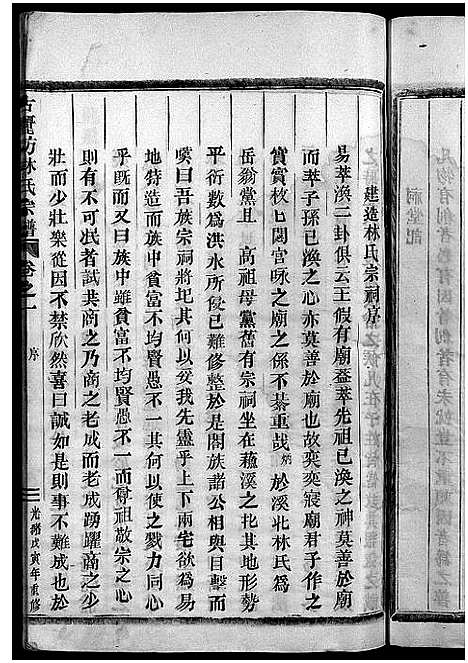 祠堂記
建造林氏宗祠序
易萃渙二卦俱云王假有廟蓋萃先祖已渙之神莫善於廟
而萃子孫已渙之心亦莫善於廟也故奕奕寢廟君子作之
實實枚枚閟宮咏之廟之係不綦重哉 於溪北林氏爲
岳翁黨且 高祖母黨舊有宗祠坐在蘓溪之北其地形勢
平衍歉爲洪水所侵已難修整於是閤族諸公相與目擊而
嘆曰吾族宗祠將圯其何以妥我先靈乎上下兩宅欲爲易
地特造而族中貧富不均賢愚不一其何以使之戮力同心
乎既而又曰族中雖貧富不均賢愚不一而尊祖敬宗之心
則有不可冺者試共商之乃商之老成而老成踴躍商之少
壯而少壯樂從因不禁欣然喜曰誠如是則事不難成也於
古竇坊林氏宗譜 卷之一 序 一 光緒戊寅年重修